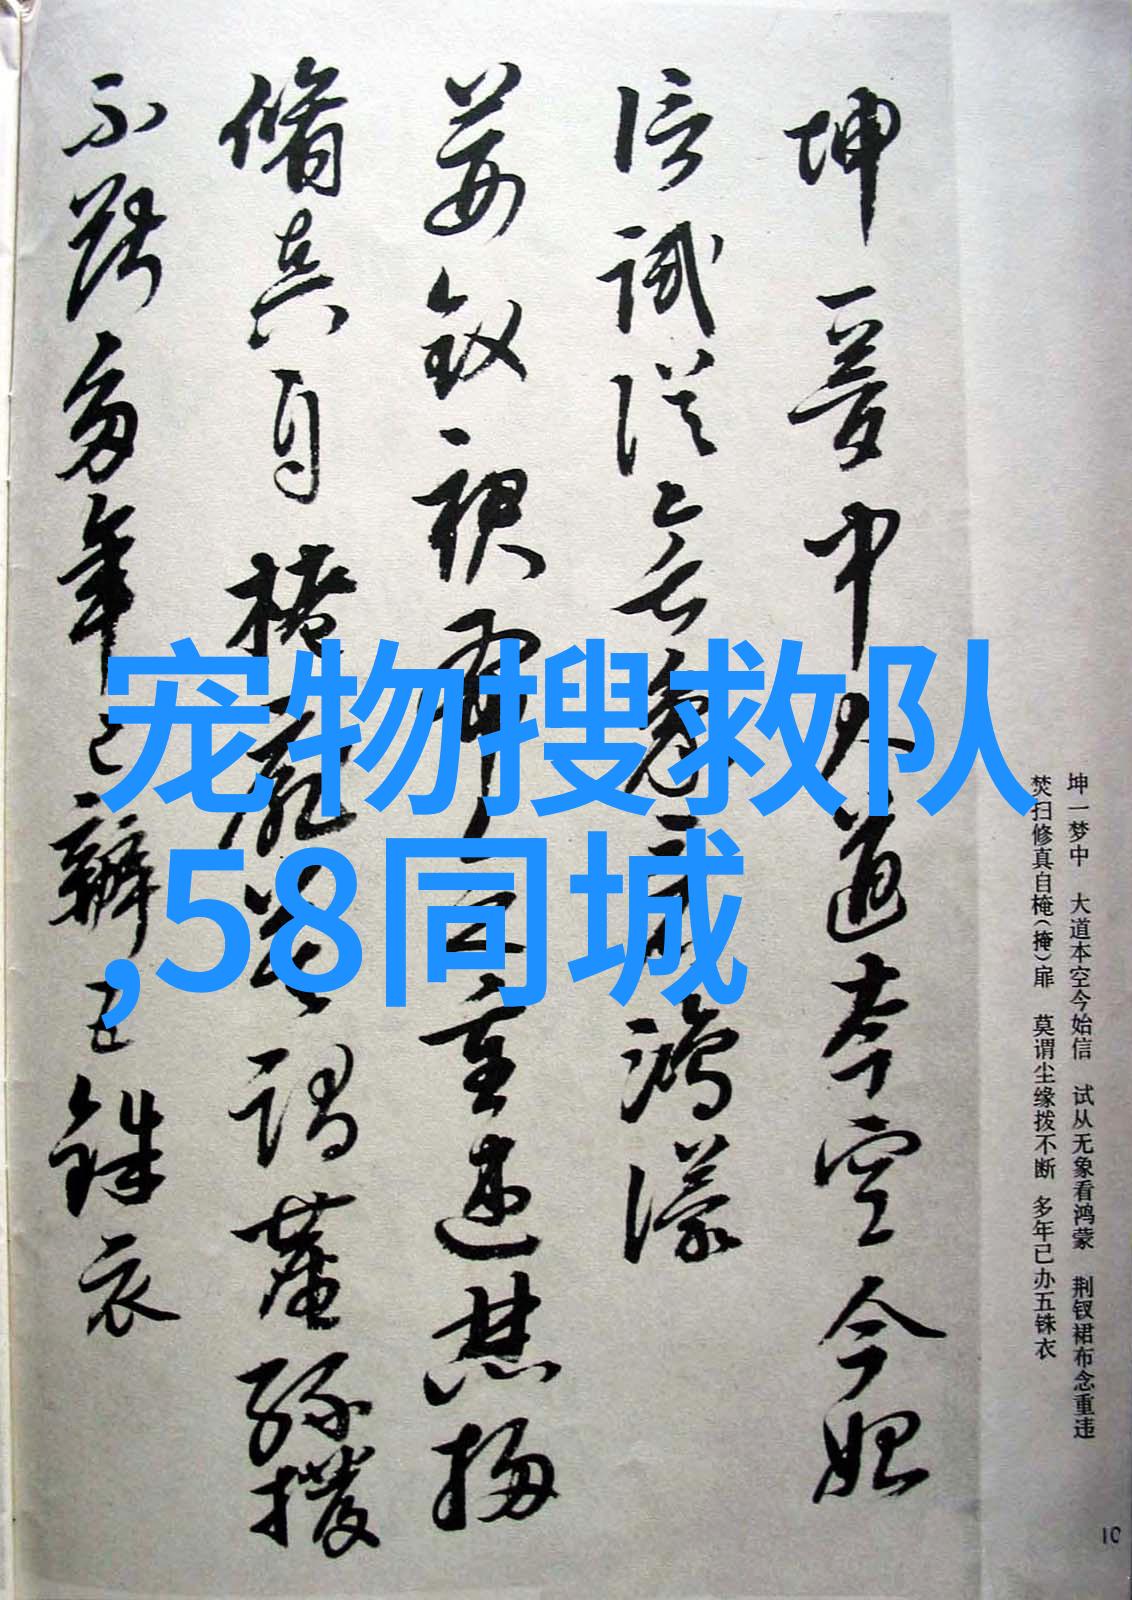 坤一夢中大道本空今始
信試從無象看鴻濛
荊釵裙布念重違焚掃
脩真自掩扉莫謂塵緣撥
不斷多年已辦五銖衣
宠物搜救队
,58同城
坤一梦中 大道本空今始信 试从无象看鸿蒙 荆钗裙布念重违
焚扫修真自(掩)扉 莫谓尘缘拨不断 多年已办五铢衣
10